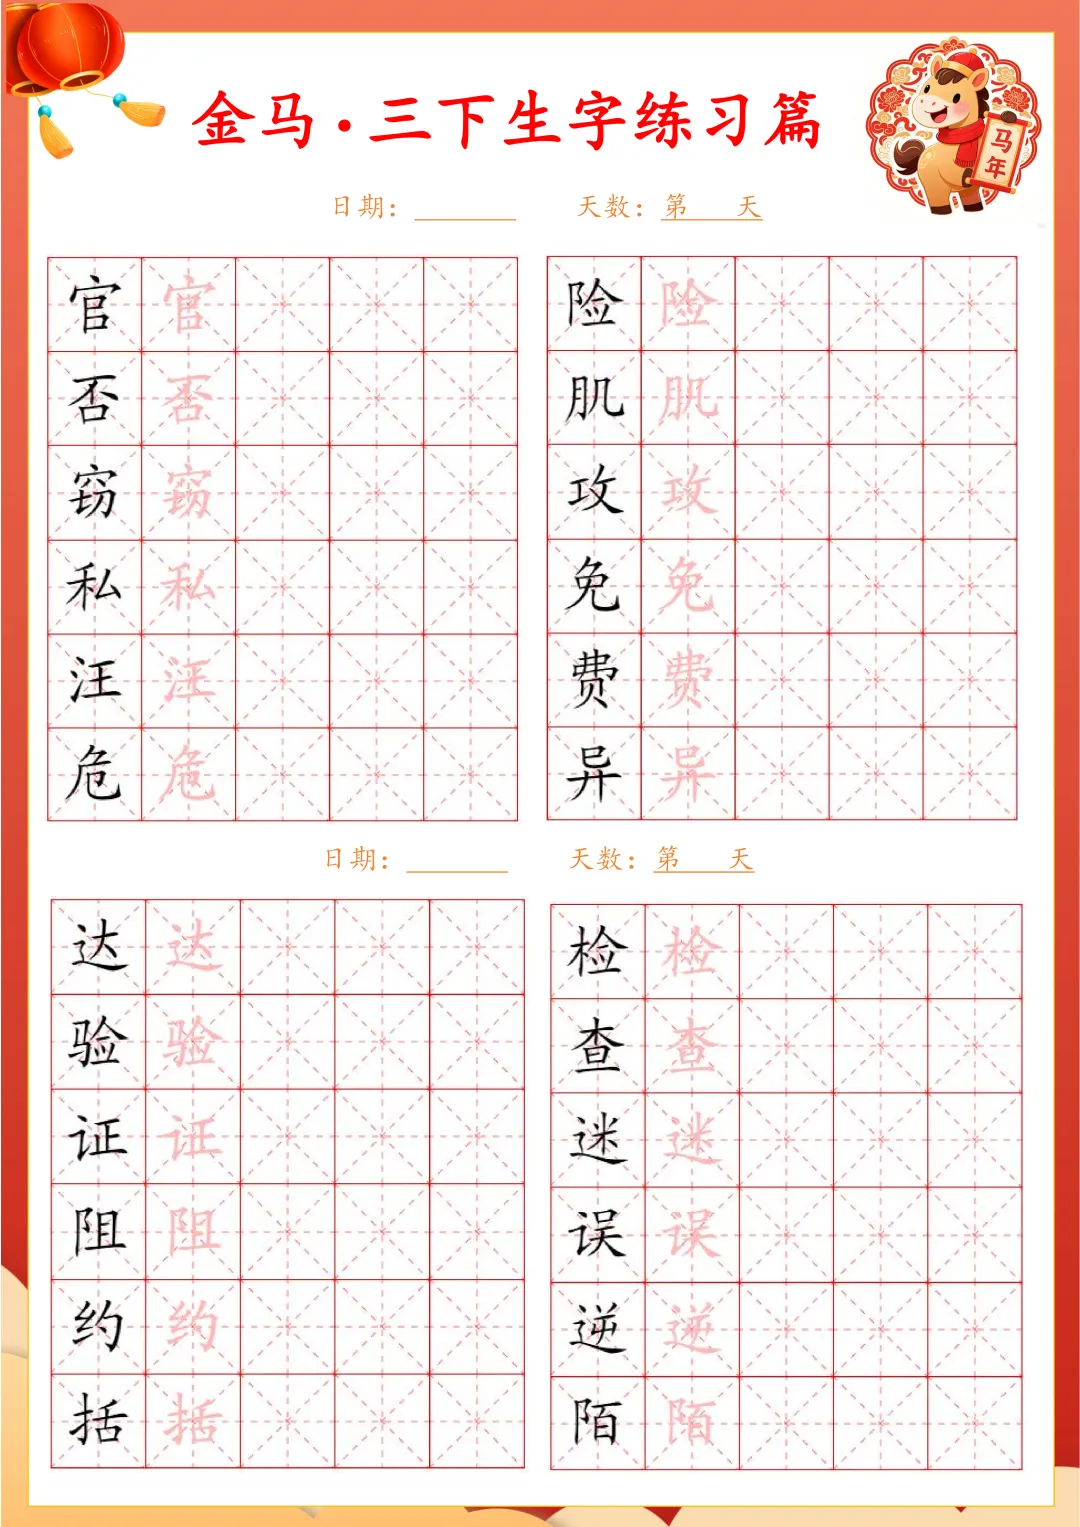 金马·三下生字练习篇
马年
日期：_______ 天数：第 天
官 官
否 否
窃 窃
私 私
汪 汪
危 危
险 险
肌 肌
攻 攻
免 免
费 费
异 异
日期：_______ 天数：第 天
达 达
验 验
证 证
阻 阻
约 约
括 括
检 检
查 查
迷 迷
误 误
逆 逆
陌 陌